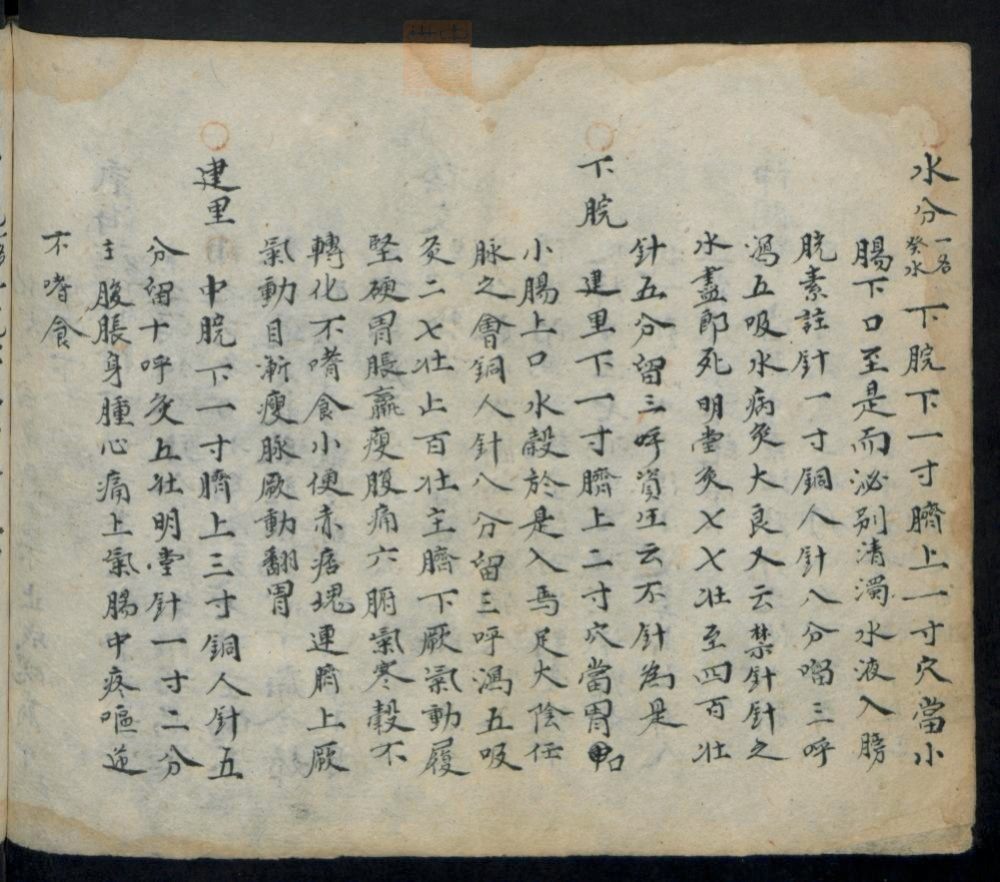 水分一名癸水 下脘下一寸臍上一寸穴當小
腸下口至是而泌别清濁水液入膀
脘素註針一寸銅人針八分留三呼
瀉五吸水病灸大良又云禁針針之
水盡即死明堂灸七七壮至四百壮
針五分留三呼資生云不針為是
下脘 建里下一寸臍上二寸穴當胃
小腸上口水穀於是入焉足大陰任
脉之會銅人針八分留三呼瀉五吸
灸二七壮止百壮主臍下厥氣動履
堅硬胃脹羸瘦腹痛六腑氣寒穀不
轉化不嗜食小便赤痞塊連臍上厥
氣動目漸瘦脉厥動翻胃
建里 中脘下一寸臍上三寸銅人針五
分留十呼灸五壮明堂針一寸二分
主腹脹身腫心痛上氣腸中疼嘔逆
不嗜食